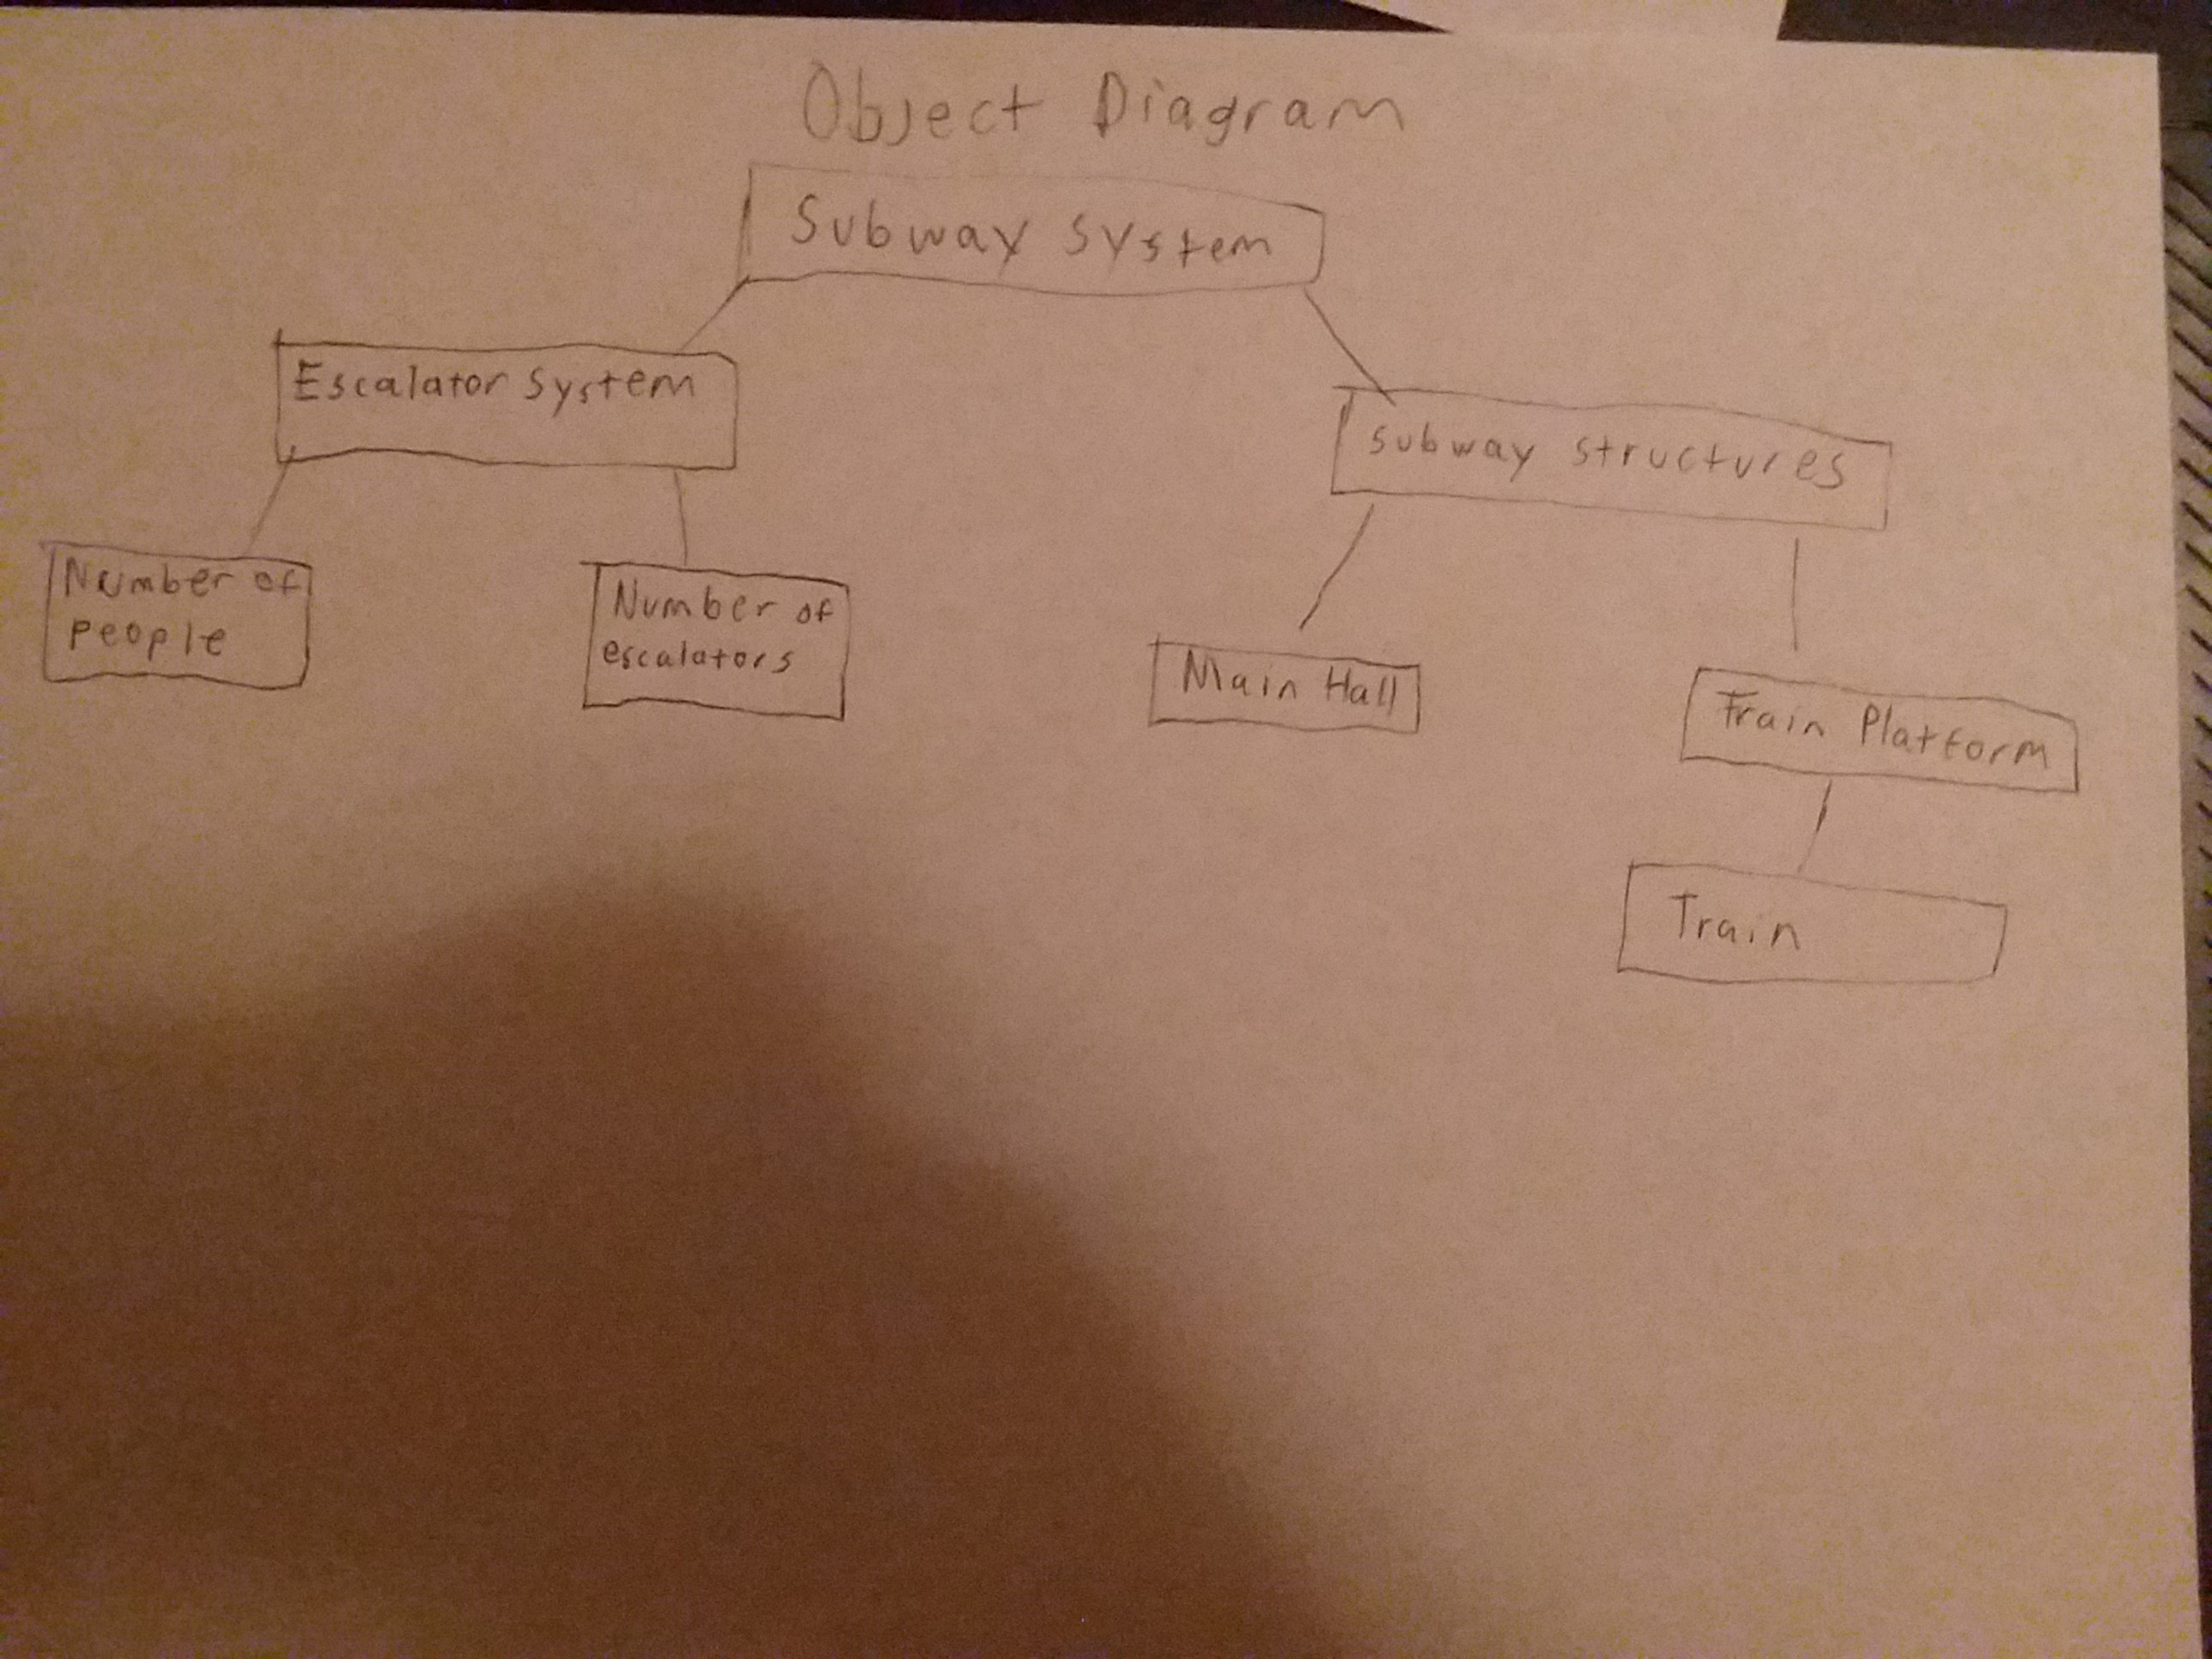 Object Diagram
Subway System
Escalator System
subway structures
Number of
people
Number of
escalators
Main Hall
Train Platform
Train